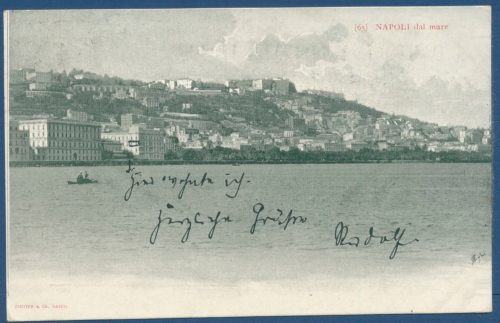 [65] NAPOLI dal mare
Hier wohnte ich.
Herzliche Grüße
Rudolf.